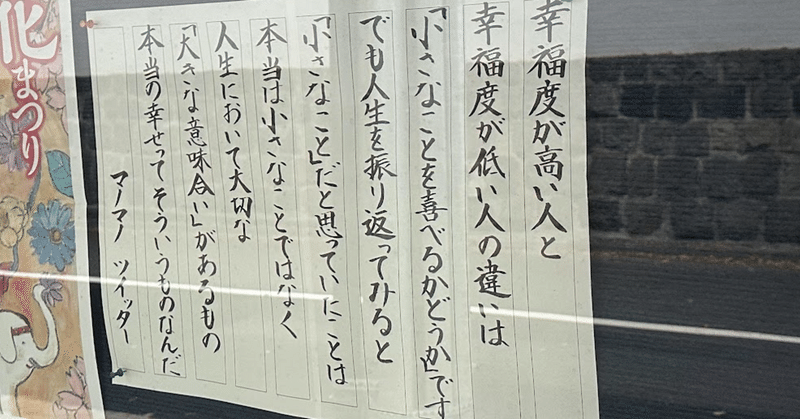 幸福度が高い人と
幸福度が低い人の違いは
「小さなことを喜べるかどうか」です
でも人生を振り返ってみると
「小さなこと」だと思っていたことは
本当は小さなことではなく
人生において大切な
「大きな意味合い」があるもの
本当の幸せってそういうものなんだ
マノマノ ツイッター
化まつり